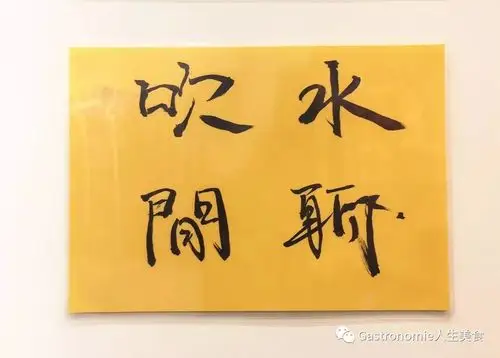 吹水
間聊
Gastronomie人生美食